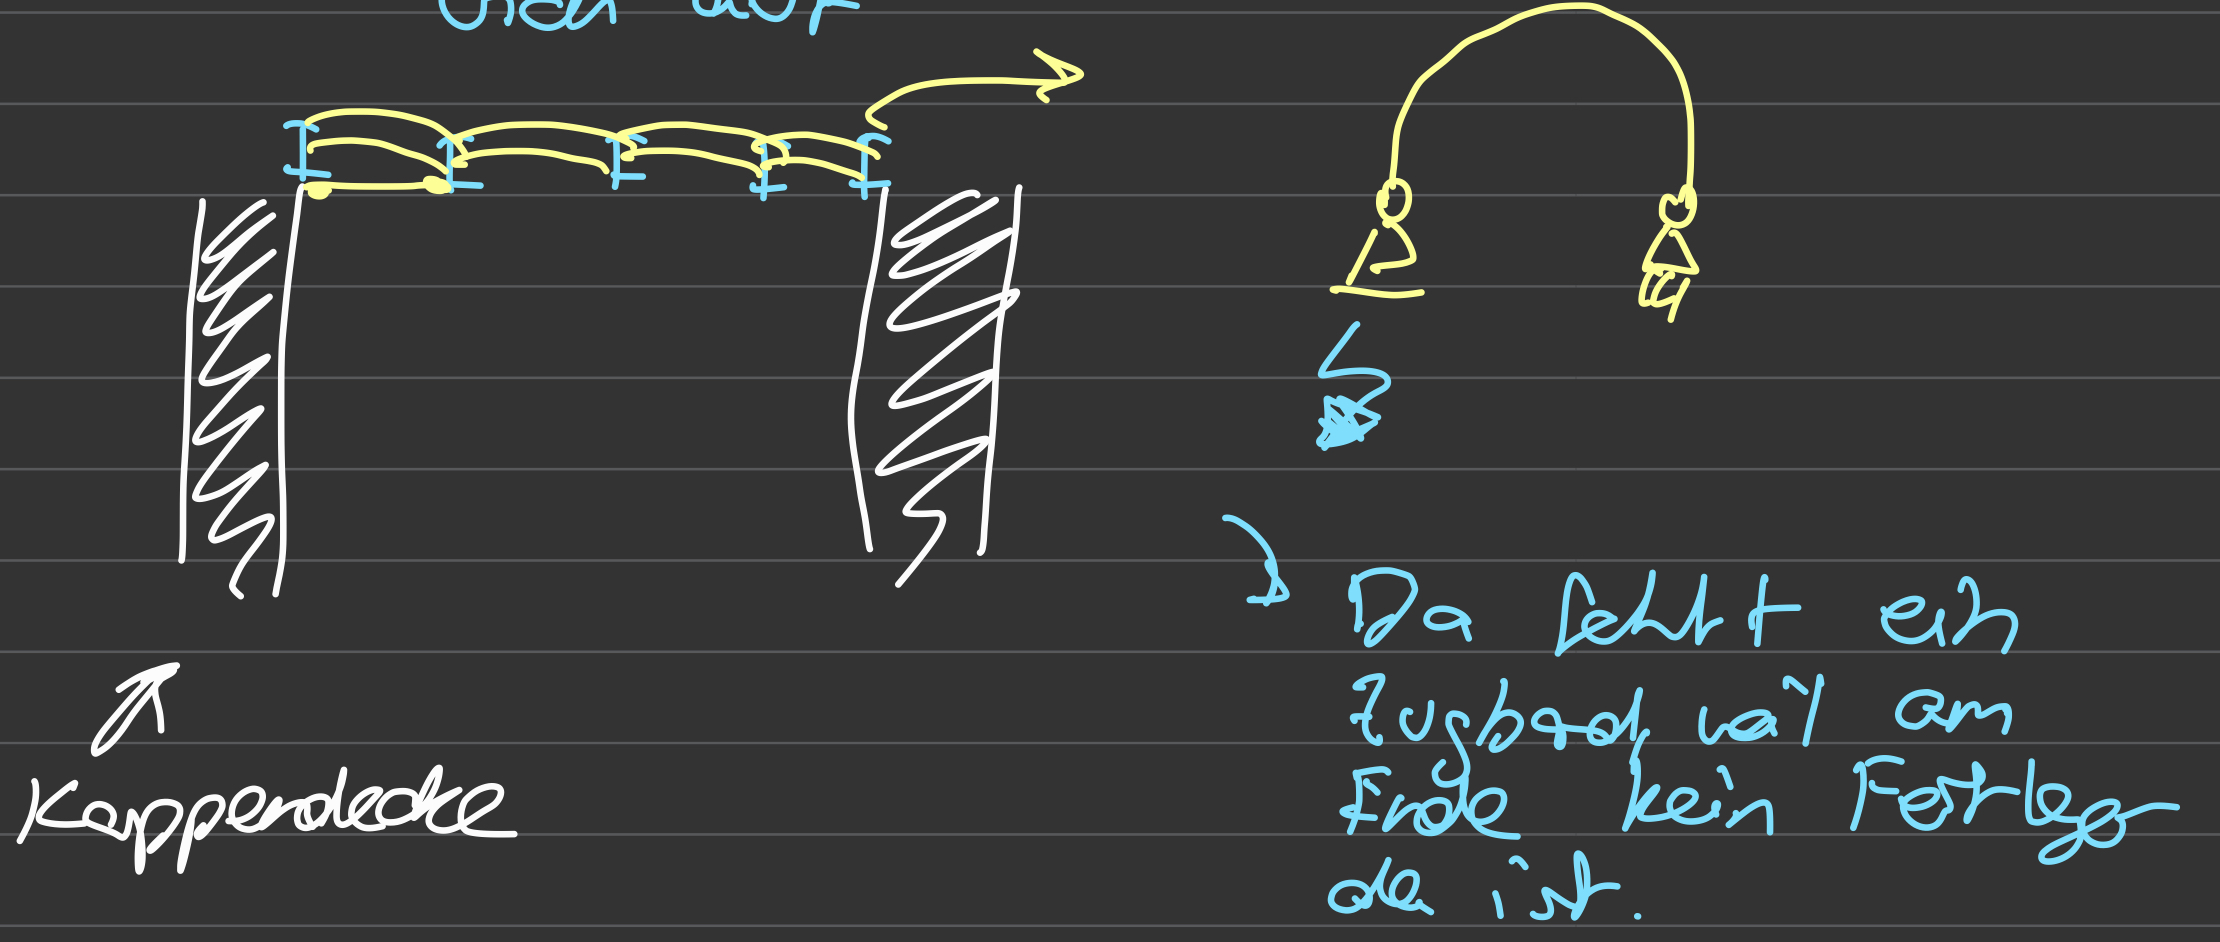 Kappendecke
Da fehlt ein
Zugband weil am
Ende kein Festlager
da ist.